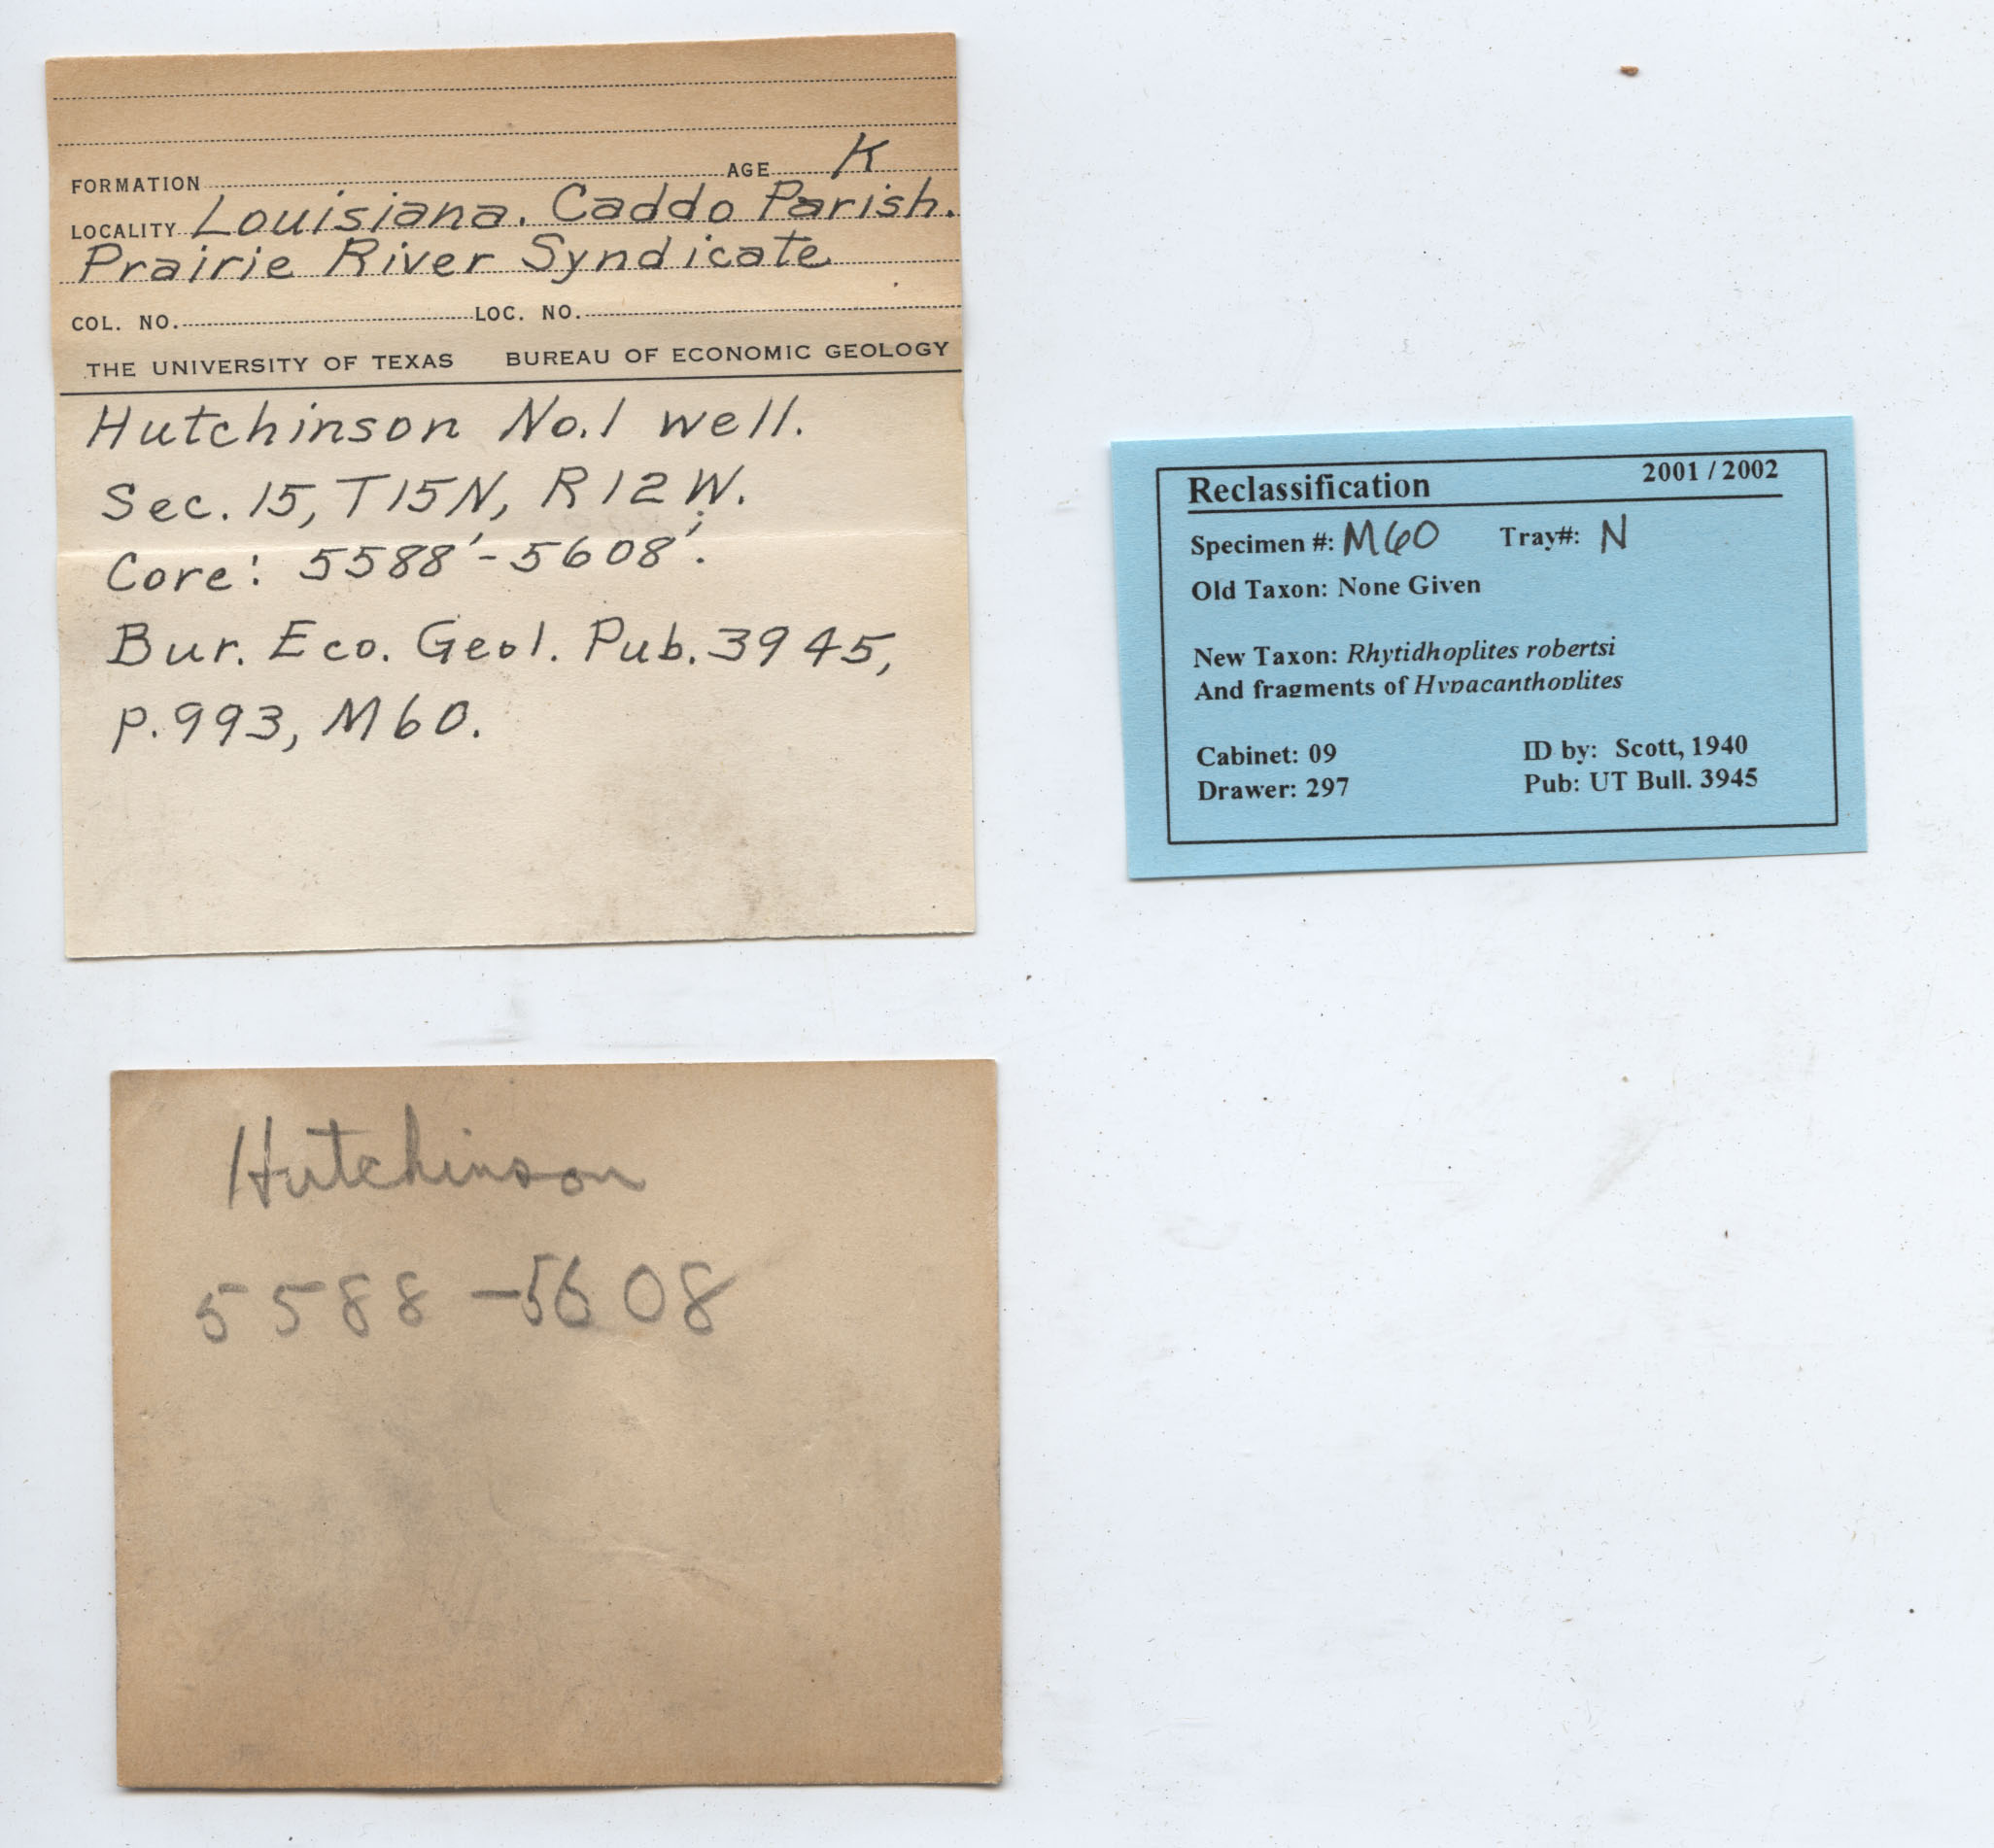 FORMATION AGE K
LOCALITY Louisiana. Caddo Parish.
Prairie River Syndicate
COL. NO. LOC. NO.
THE UNIVERSITY OF TEXAS BUREAU OF ECONOMIC GEOLOGY
Hutchinson No.1 well.
Sec. 15, T15N, R12W.
Core: 5588'-5608'.
Bur. Eco. Geol. Pub. 3945,
p. 993, M60.
Reclassification 2001 / 2002
Specimen #: M60 Tray#: N
Old Taxon: None Given
New Taxon: Rhytidhoplites robertsi
And fragments of Hypacanthoplites
Cabinet: 09 ID by: Scott, 1940
Drawer: 297 Pub: UT Bull. 3945
Hutchinson
5588-5608